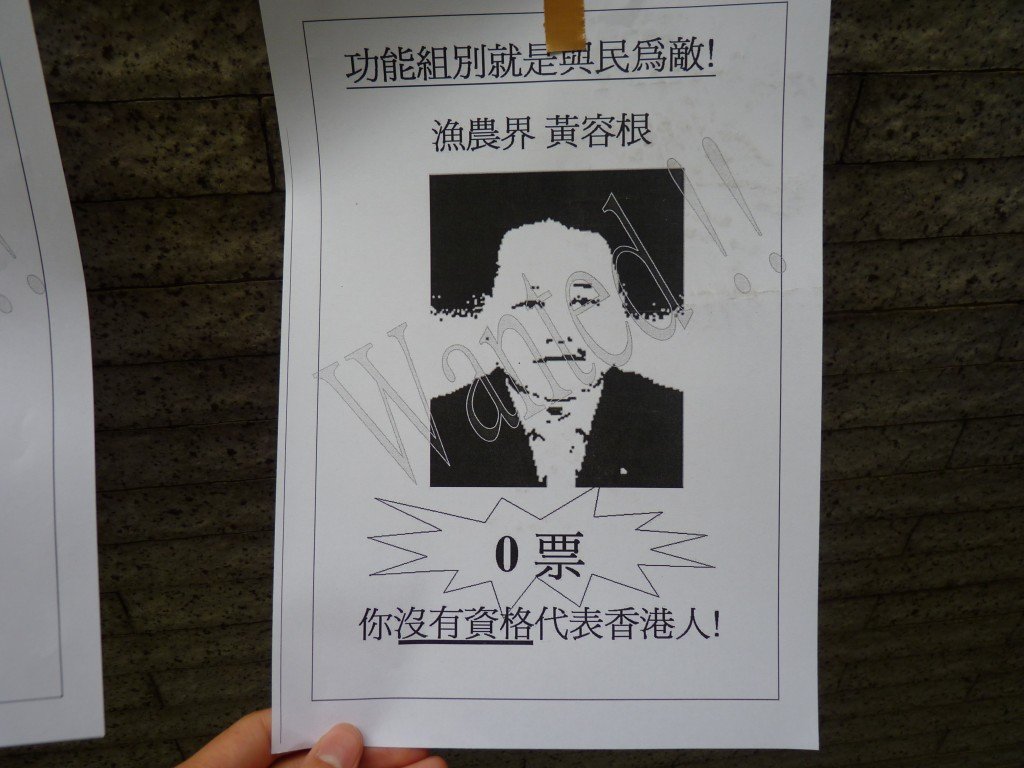 功能組別就是與民爲敵!
漁農界 黃容根
Wanted!!
0 票
你沒有資格代表香港人!